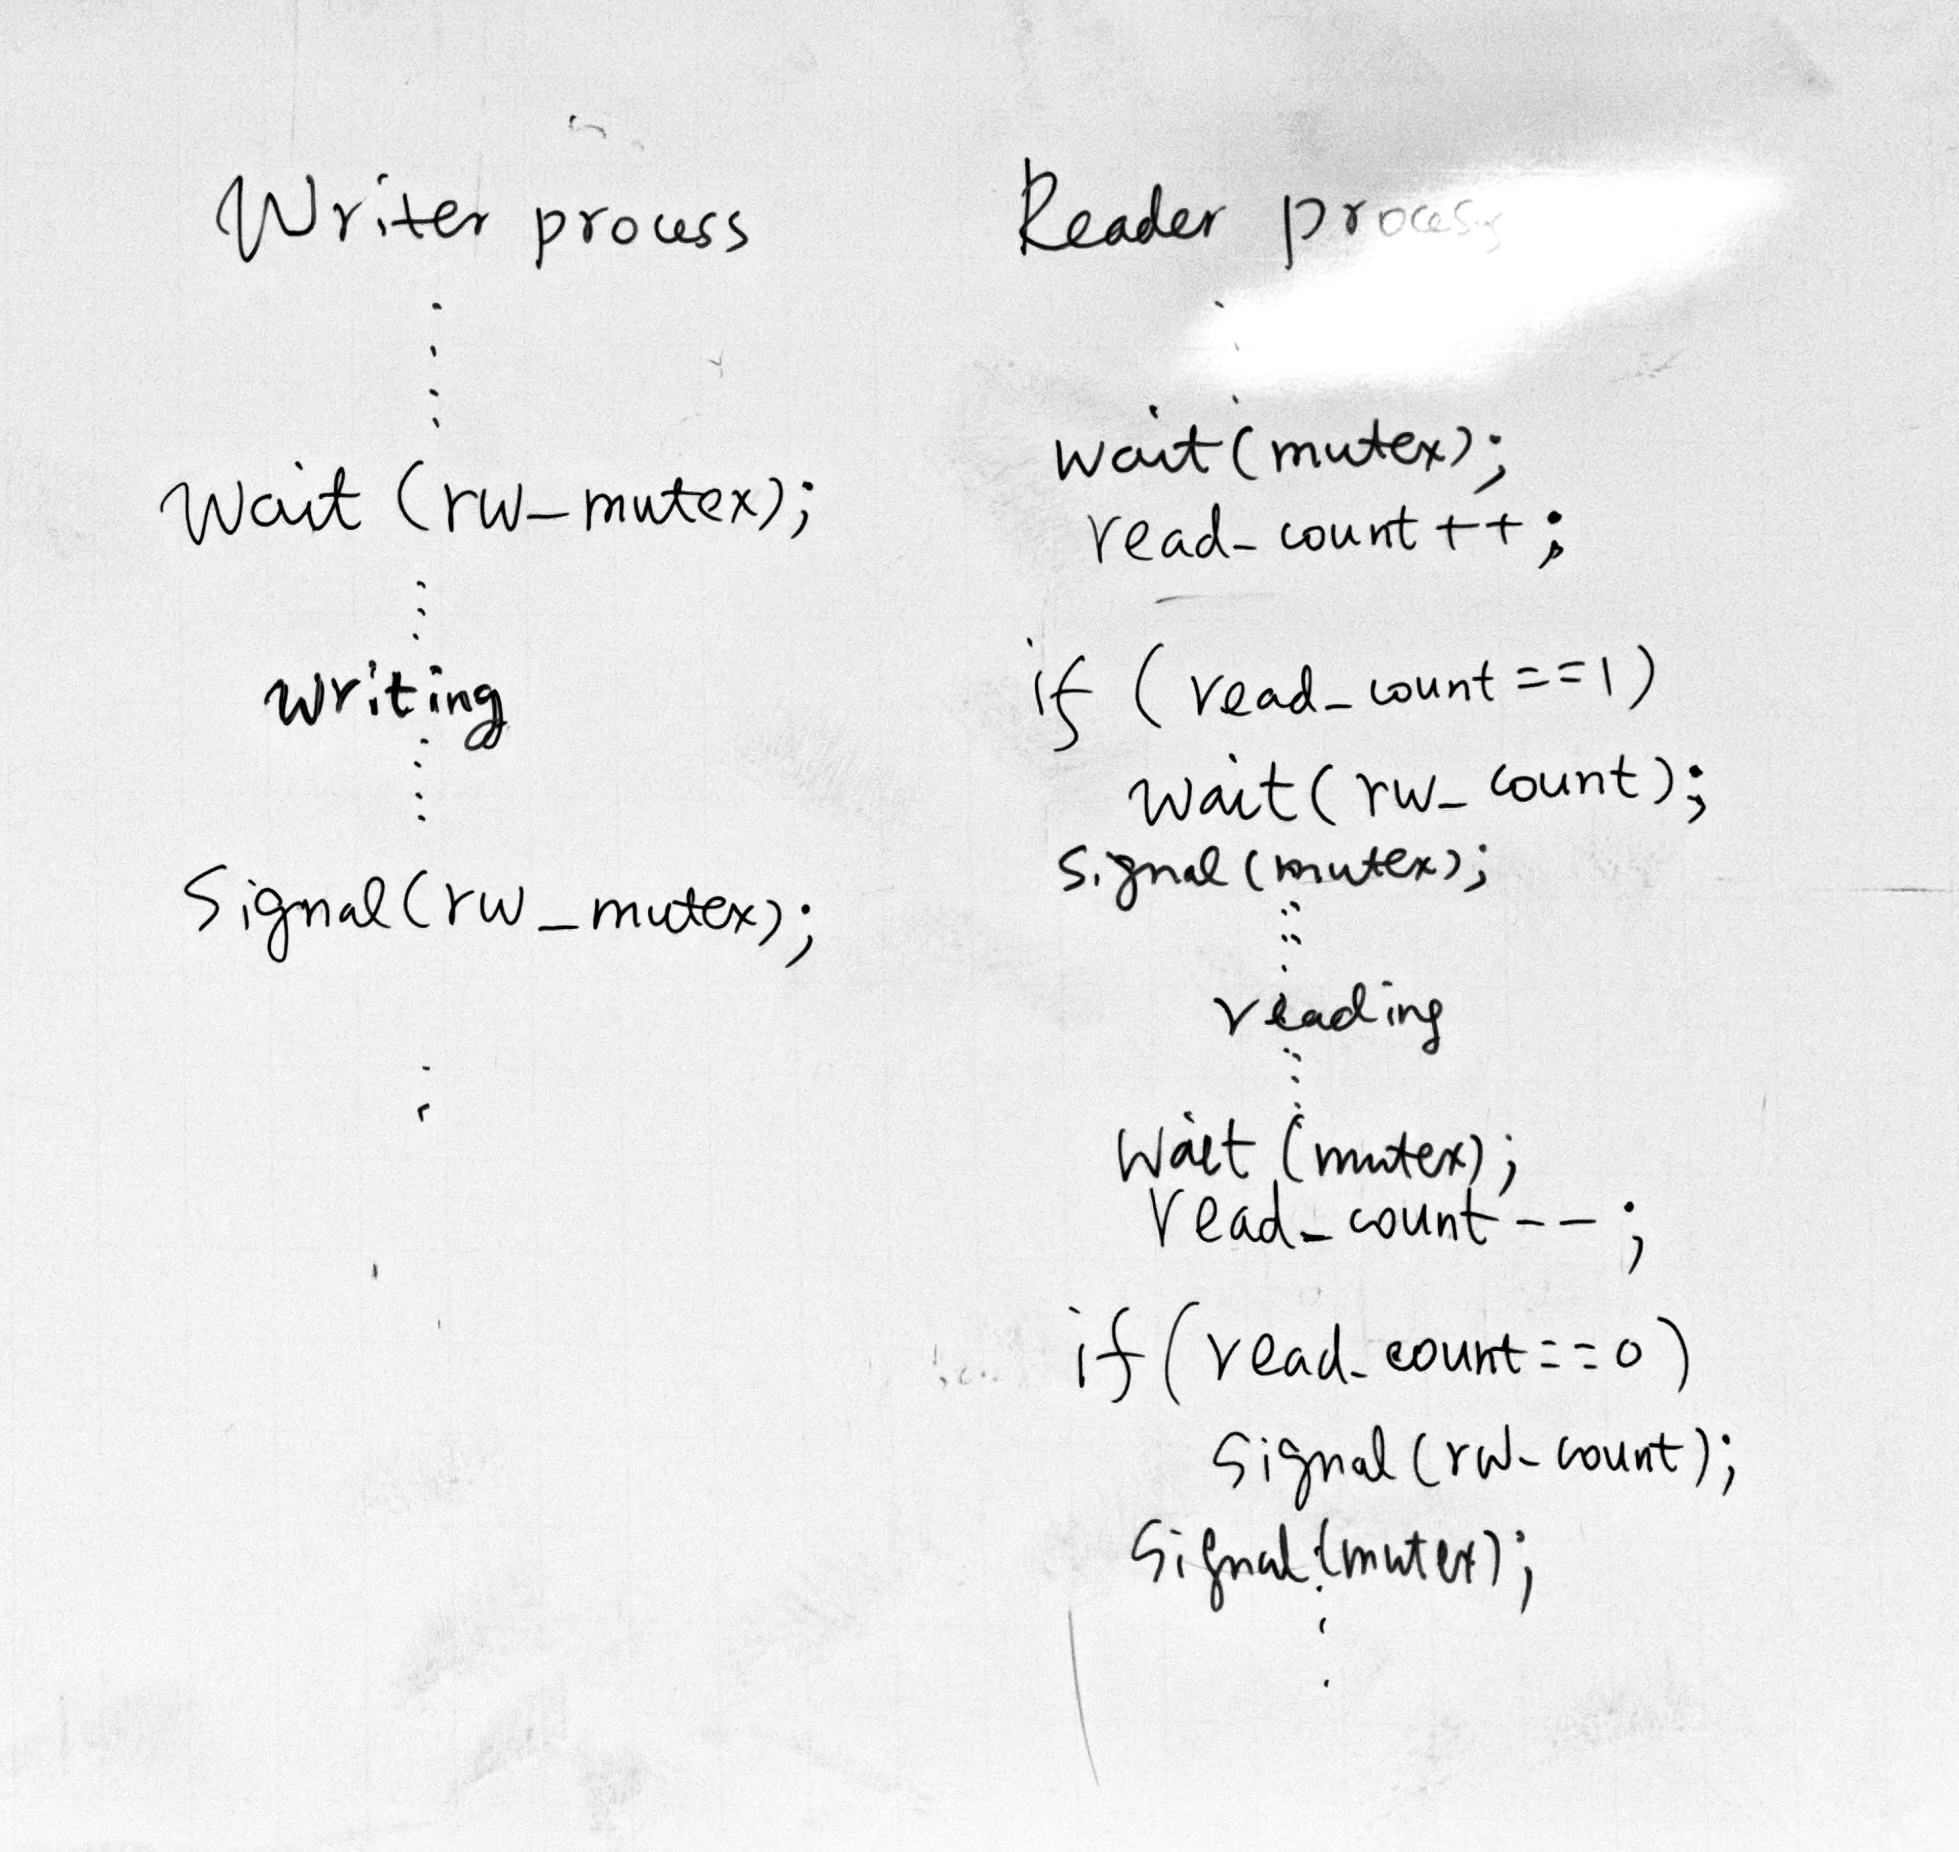 Writer process
Wait (rw_mutex);
writing
Signal(rw_mutex);
Reader process
wait(mutex);
read_count++;
if (read_count==1)
wait(rw_count);
signal(mutex);
reading
wait(mutex);
read_count--;
if(read_count==0)
signal(rw_count);
signal(mutex);